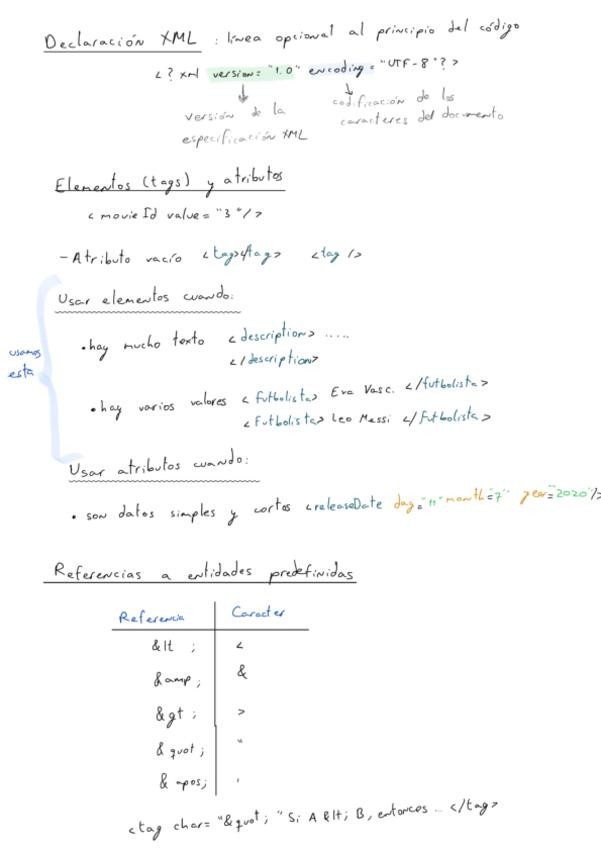 Declaración XML : línea opcional al principio del código
<? xml version= "1.0" encoding= "UTF-8"?>
versión de la
especificación XML
codificación de los
caracteres del documento
Elementos (tags) y atributos
<movieId value= "3"/>
- Atributo vacío <tag></tag> <tag />
usamos
esta
Usar elementos cuando:
• hay mucho texto <description> .....
</description>
• hay varios valores <futbolista> Eva Vasc. </futbolista>
<futbolista> Leo Messi </futbolista>
Usar atributos cuando:
• son datos simples y cortos <releaseDate day="11" month="7" year="2020"/>
Referencias a entidades predefinidas
Referencia Caracter
&lt ; <
&amp; &
&gt ; >
&quot; "
&apos; '
<tag char= "&quot; " Si A &lt; B, entonces ... </tag>